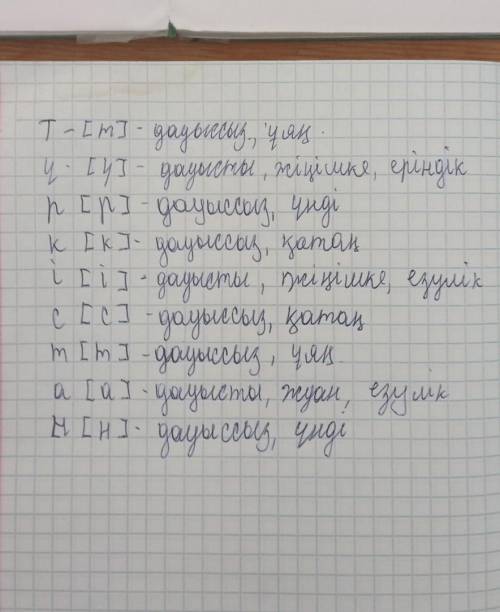 Т - [т] - дауыссыз, ұяң.
ү - [ү] - дауысты, жіңішке, еріндік
р [р] - дауыссыз, үнді
к [к] - дауыссыз, қатаң
і [і] - дауысты, жіңішке, езулік
с [с] - дауыссыз, қатаң
т [т] - дауыссыз, ұяң.
а [а] - дауысты, жуан, езулік
н [н] - дауыссыз, үнді